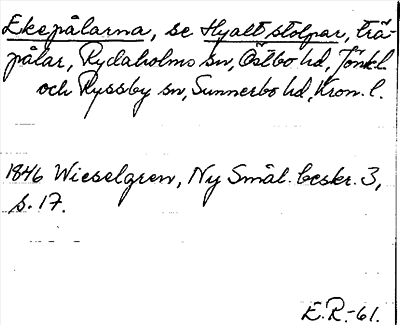 Ekepålarna, se Hyaltstolpar, trä-
pålar, Rydaholms sn, Östbo hd, Jönkl.
och Ryssby sn, Sunnerbo hd, Kron.l.
1846 Wieselgren, Ny Smål. beskr. 3,
s. 17.
E.R.-61.